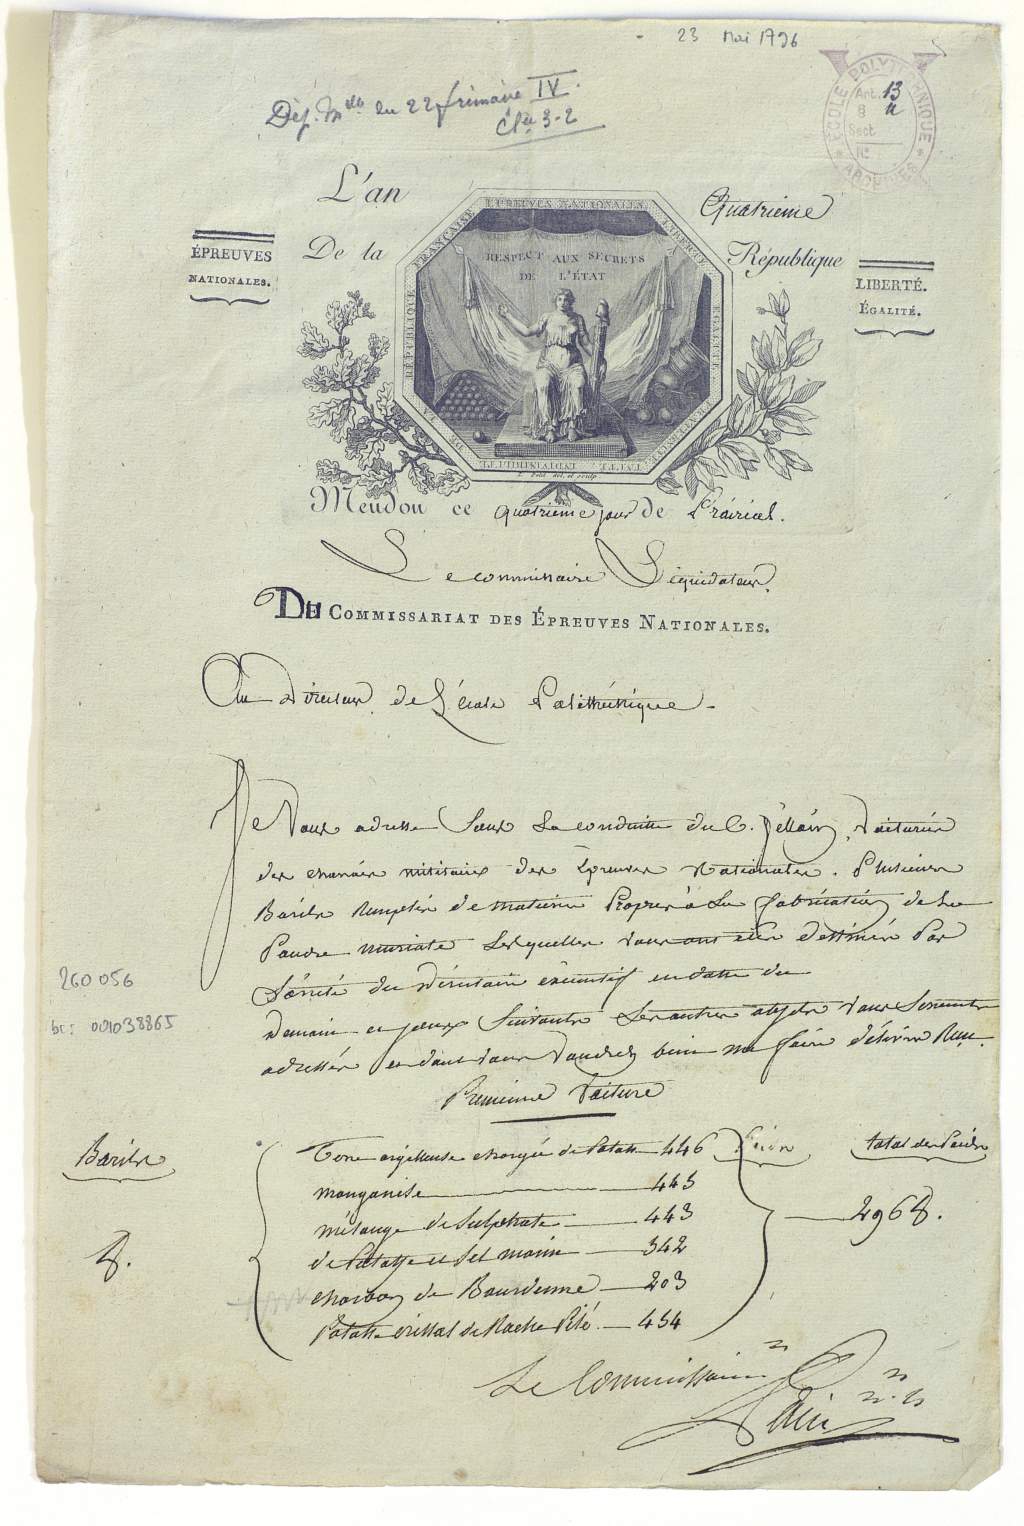 23 Mai 1796
Dép. M de du 22 frimaire IV.
Clée 3-2
ÉCOLE POLYTECHNIQUE
ARCHIVES
Art. 13
8 u
Sect
No
L'an Quatrieme
De la République
ÉPREUVES
NATIONALES.
LIBERTÉ.
ÉGALITÉ.
ÉPREUVES NATIONALES
LIBERTÉ
ÉGALITÉ
DE LA RÉPUBLIQUE FRANÇAISE
RESPECT AUX SECRETS
DE L'ÉTAT
Meudon ce quatrieme jour de Prairial.
Le commissaire Liquidateur,
DU COMMISSARIAT DES ÉPREUVES NATIONALES.
Au Directeur de L'école Polithéhnique
Je Vous adresse Sous La conduitte du C. Voiturier
des charrois militaire des Epreuves Nationales. Plusieurs
Barils Remplis de matieres Propres à La fabrication de La
Poudre muriate Lesquelles vous ont étée destinés Par
L'arrêté du Directoire exécutif en datte du
Demain et jours Suivants Les autres objets vous Seronts
adressés et dont vous Voudrez bien me faire délivrer Reçu.
Premiere Voiture
Barils
Poids
total des Poids
Terre argilleuse chargée de Potasse 446
manganèse 445
mélange de Sulphate 443
de Potasse et Sel marin 342
charbon de Bourdenne 203
Potasse Pilé. 454
8.
2968.
Le Commissaire
260 056
bc: 001038865